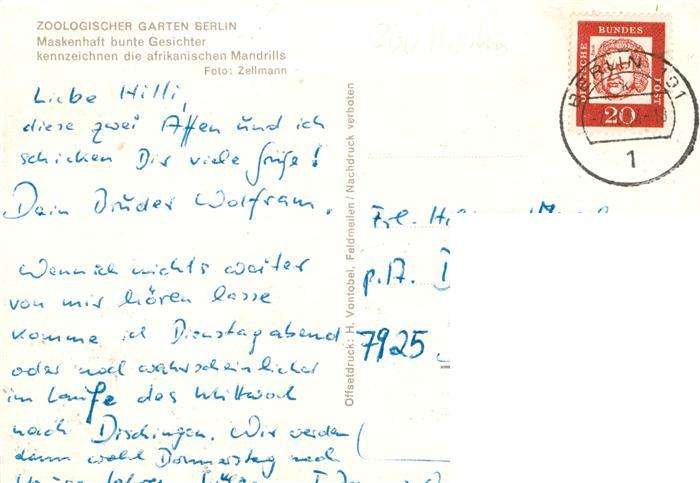 ZOOLOGISCHER GARTEN BERLIN
Maskenhaft bunte Gesichter
kennzeichnen die afrikanischen Mandrills
Foto: Zellmann
Liebe Hilli,
diese zwei Affen und ich
schicken Dir viele Grüße!
Dein Bruder Wolfram.
Wenn ich nichts weiter
von mir hören lasse
komme ich Dienstagabend
oder noch wahrscheinlicher
im Laufe des Mittwoch
nach Dischingen. Wir werden
dann wohl Donnerstag nach
Offsetdruck: H. Vontobel, Feldmeilen/Nachdruck verboten
DEUTSCHE BUNDESPOST
20
BERLIN 131
1
Frl.
p.A.
7925